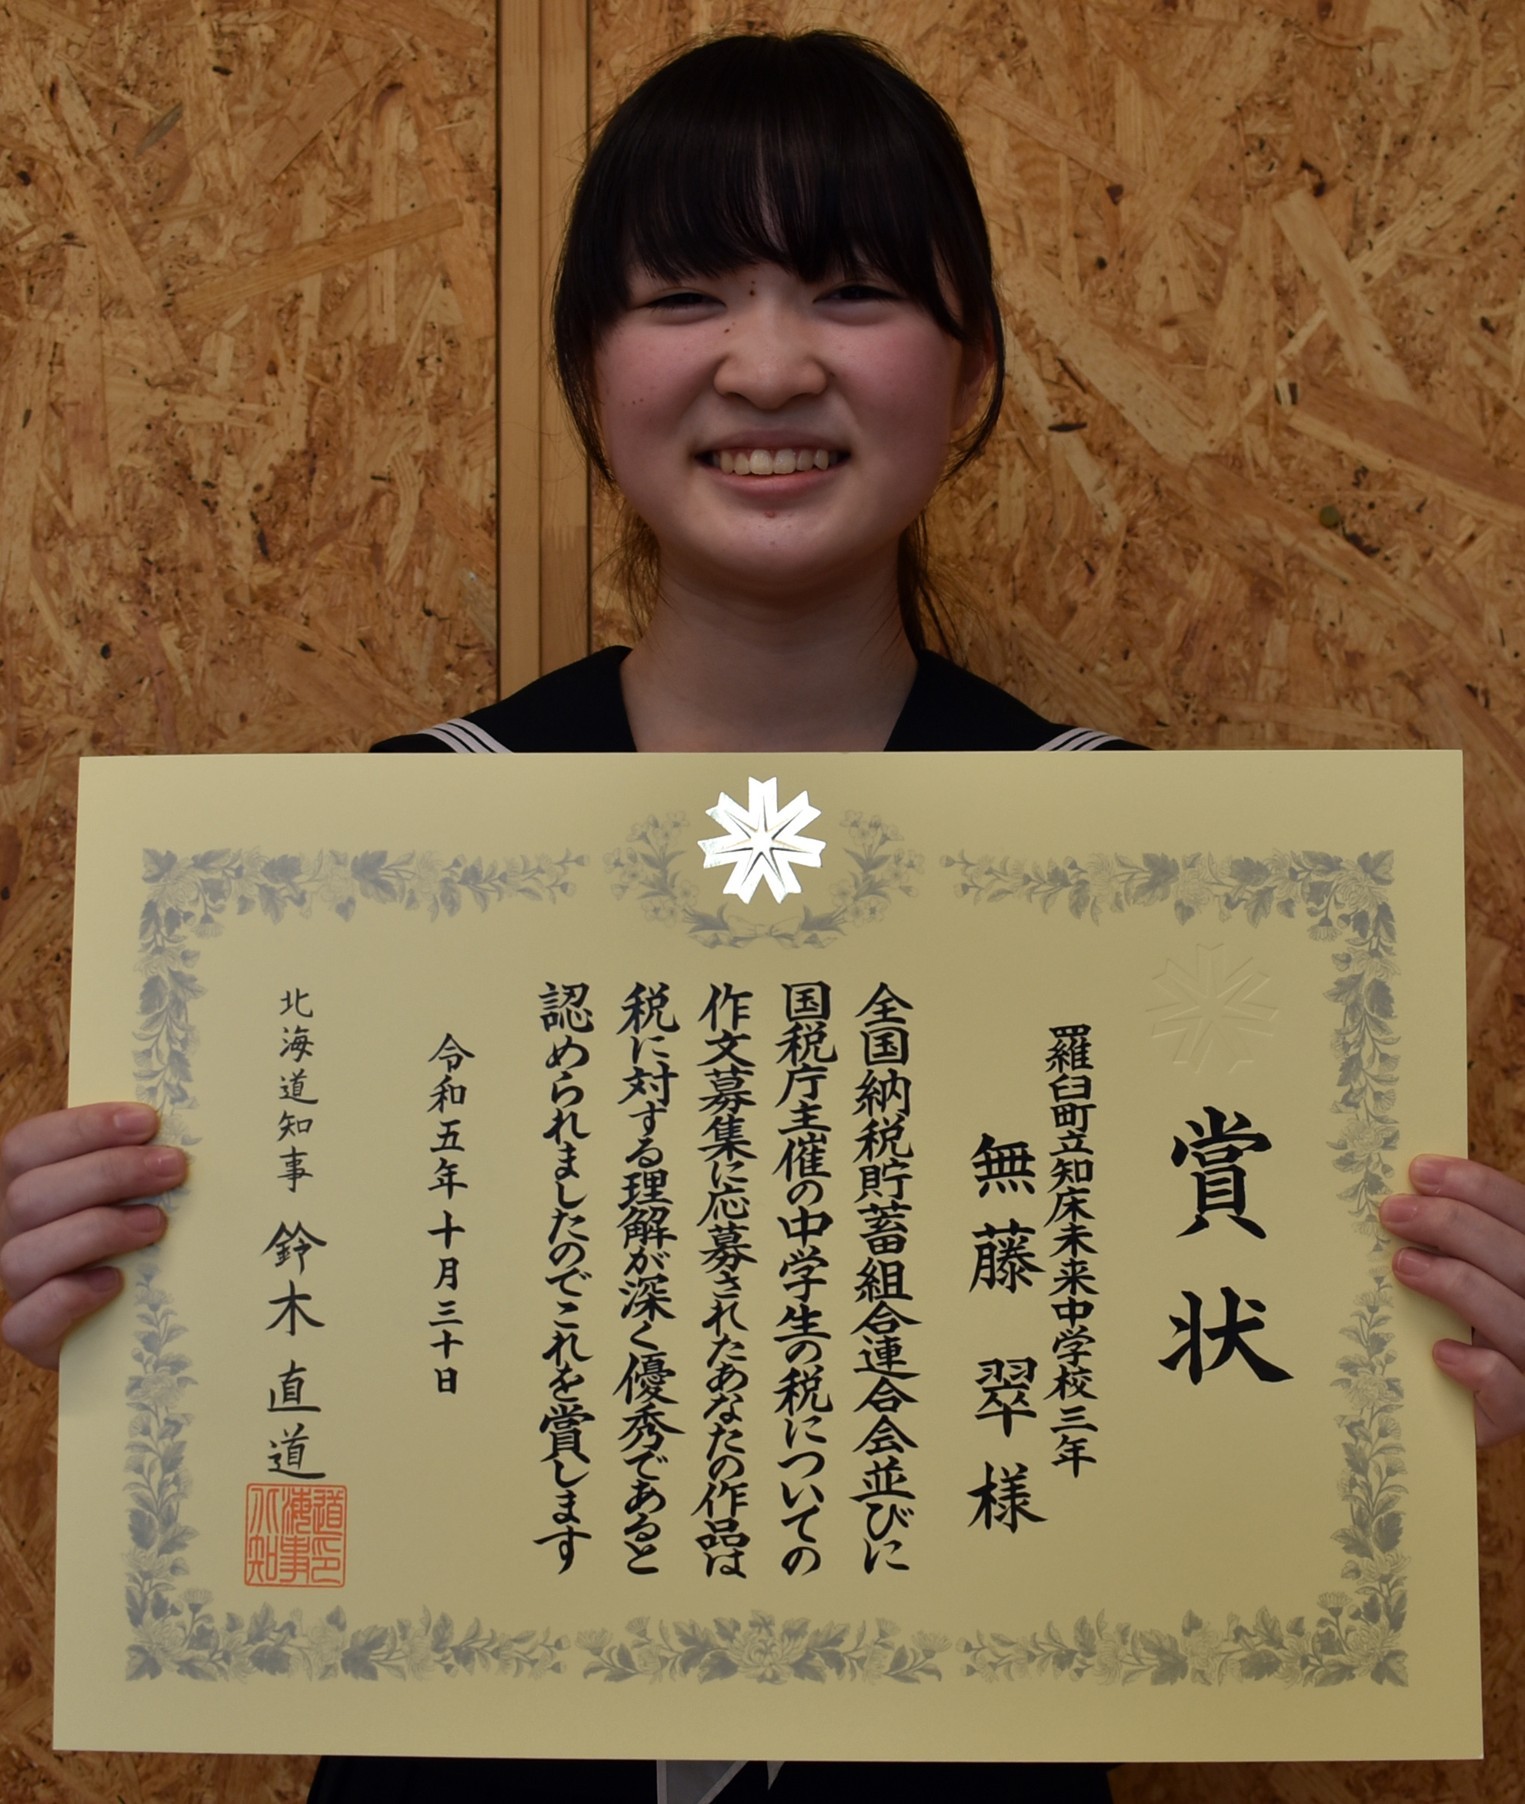 賞状
羅臼町立知床未来中学校三年
無藤翠様
全国納税貯蓄組合連合会並びに
国税庁主催の中学生の税についての
作文募集に応募されたあなたの作品は
税に対する理解が深く優秀であると
認められましたのでこれを賞します
令和五年十月三十日
北海道知事 鈴木直道
北海道知事印